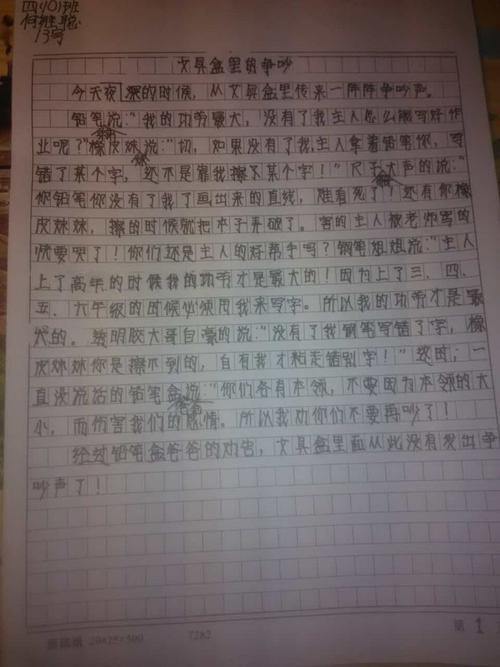 四(10)班
13号
文具盒里的争吵
今天夜深的时候,从文具盒里传来一阵阵争吵声。
铅笔说:"我的功劳最大,没有了我主人怎么能写好作
业呢?"橡皮妹说:"切,如果没有了我,主人拿着铅笔你,写
错了某个字,还不是靠我擦了某个字!"尺子大声的说:"
你铅笔你没有了我了画出来的直线,难看死了!还有你橡
皮妹妹,擦的时候就把本子弄破了。害的主人被老师骂的
快要哭了!你们还是主人的好帮手吗?钢笔姐姐说:"主人
上了高年的时候我的功劳才是最大的!因为上了三、四、
五、六年级的时候必须用我来写字。所以我的功劳才是最
大的。透明胶大哥自豪的说:"没有了我钢笔写错了字,橡
皮妹妹你是擦不到的,自有我才粘走错别字!"这时,一
直没说话的铅笔盒爸爸说:"你们各有本领,不要因为本领的大
小,而伤害我们的感情。所以我劝你们不要再吵了!
经过铅笔盒爸爸的劝告,文具盒里面从此没有发出争
吵声了!
20×25=500 7282 第 1